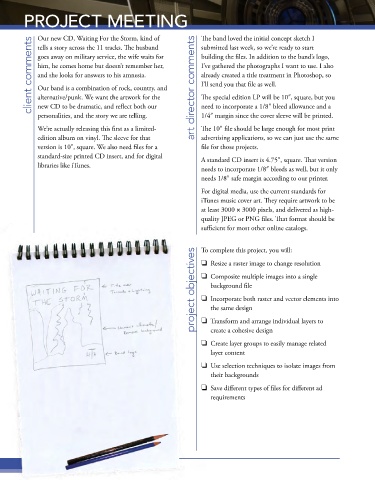 PROJECT MEETING
client comments
Our new CD, Waiting For the Storm, kind of
tells a story across the 11 tracks. The husband
goes away on military service, the wife waits for
him, he comes home but doesn't remember her,
and she looks for answers to his amnesia.
Our band is a combination of rock, country, and
alternative/punk. We want the artwork for the
new CD to be dramatic, and reflect both our
personalities, and the story we are telling.
We're actually releasing this first as a limited-
edition album on vinyl. The sleeve for that
version is 10", square. We also need files for a
standard-size printed CD insert, and for digital
libraries like iTunes.
art director comments
The band loved the initial concept sketch I
submitted last week, so we're ready to start
building the files. In addition to the band's logo,
I've gathered the photographs I want to use. I also
already created a title treatment in Photoshop, so
I'll send you that file as well.
The special edition LP will be 10", square, but you
need to incorporate a 1/8" bleed allowance and a
1/4" margin since the cover sleeve will be printed.
The 10" file should be large enough for most print
advertising applications, so we can just use the same
file for those projects.
A standard CD insert is 4.75", square. That version
needs to incorporate 1/8" bleeds as well, but it only
needs 1/8" safe margin according to our printer.
For digital media, use the current standards for
iTunes music cover art. They require artwork to be
at least 3000 × 3000 pixels, and delivered as high-
quality JPEG or PNG files. That format should be
sufficient for most other online catalogs.
project objectives
To complete this project, you will:
❏ Resize a raster image to change resolution
❏ Composite multiple images into a single
background file
❏ Incorporate both raster and vector elements into
the same design
❏ Transform and arrange individual layers to
create a cohesive design
❏ Create layer groups to easily manage related
layer content
❏ Use selection techniques to isolate images from
their backgrounds
❏ Save different types of files for different ad
requirements
WAITING FOR
THE STORM
Band logo